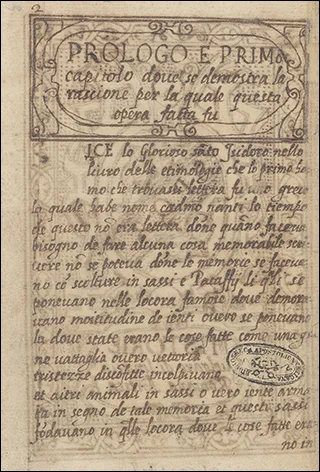 2
PROLOGO E PRIMo
capitolo doue se demostra la
rascione per la quale questa
opera fatta fu
ICE lo Glorioso sāto Isidoro nello
libro delle etimologie che lo primo ho
mo che trouassi lettera fu greco
lo quale habe nome cadmo nanti lo tiempo
de questo nō era lettera dōne quando faceua
bisogno de fare alcuna cosa memorabile scri
uere nō se poteua dōne le memorie se faceua
no cō scolture in sassi e Pataffij li q̄li se
poneuano nelle locora famose doue demora
uano moltitudine de ienti ouero se poneuano
la doue state erano le cose fatte come una gra
ne uattaglia ouero uettoria
tristezze discofitte incolpiuano
et altri animali in sassi o uero iente arma
ta in segno de tale memoria et questi sassi
fōdauano in q̄lle locora doue le cose fatte era
no in